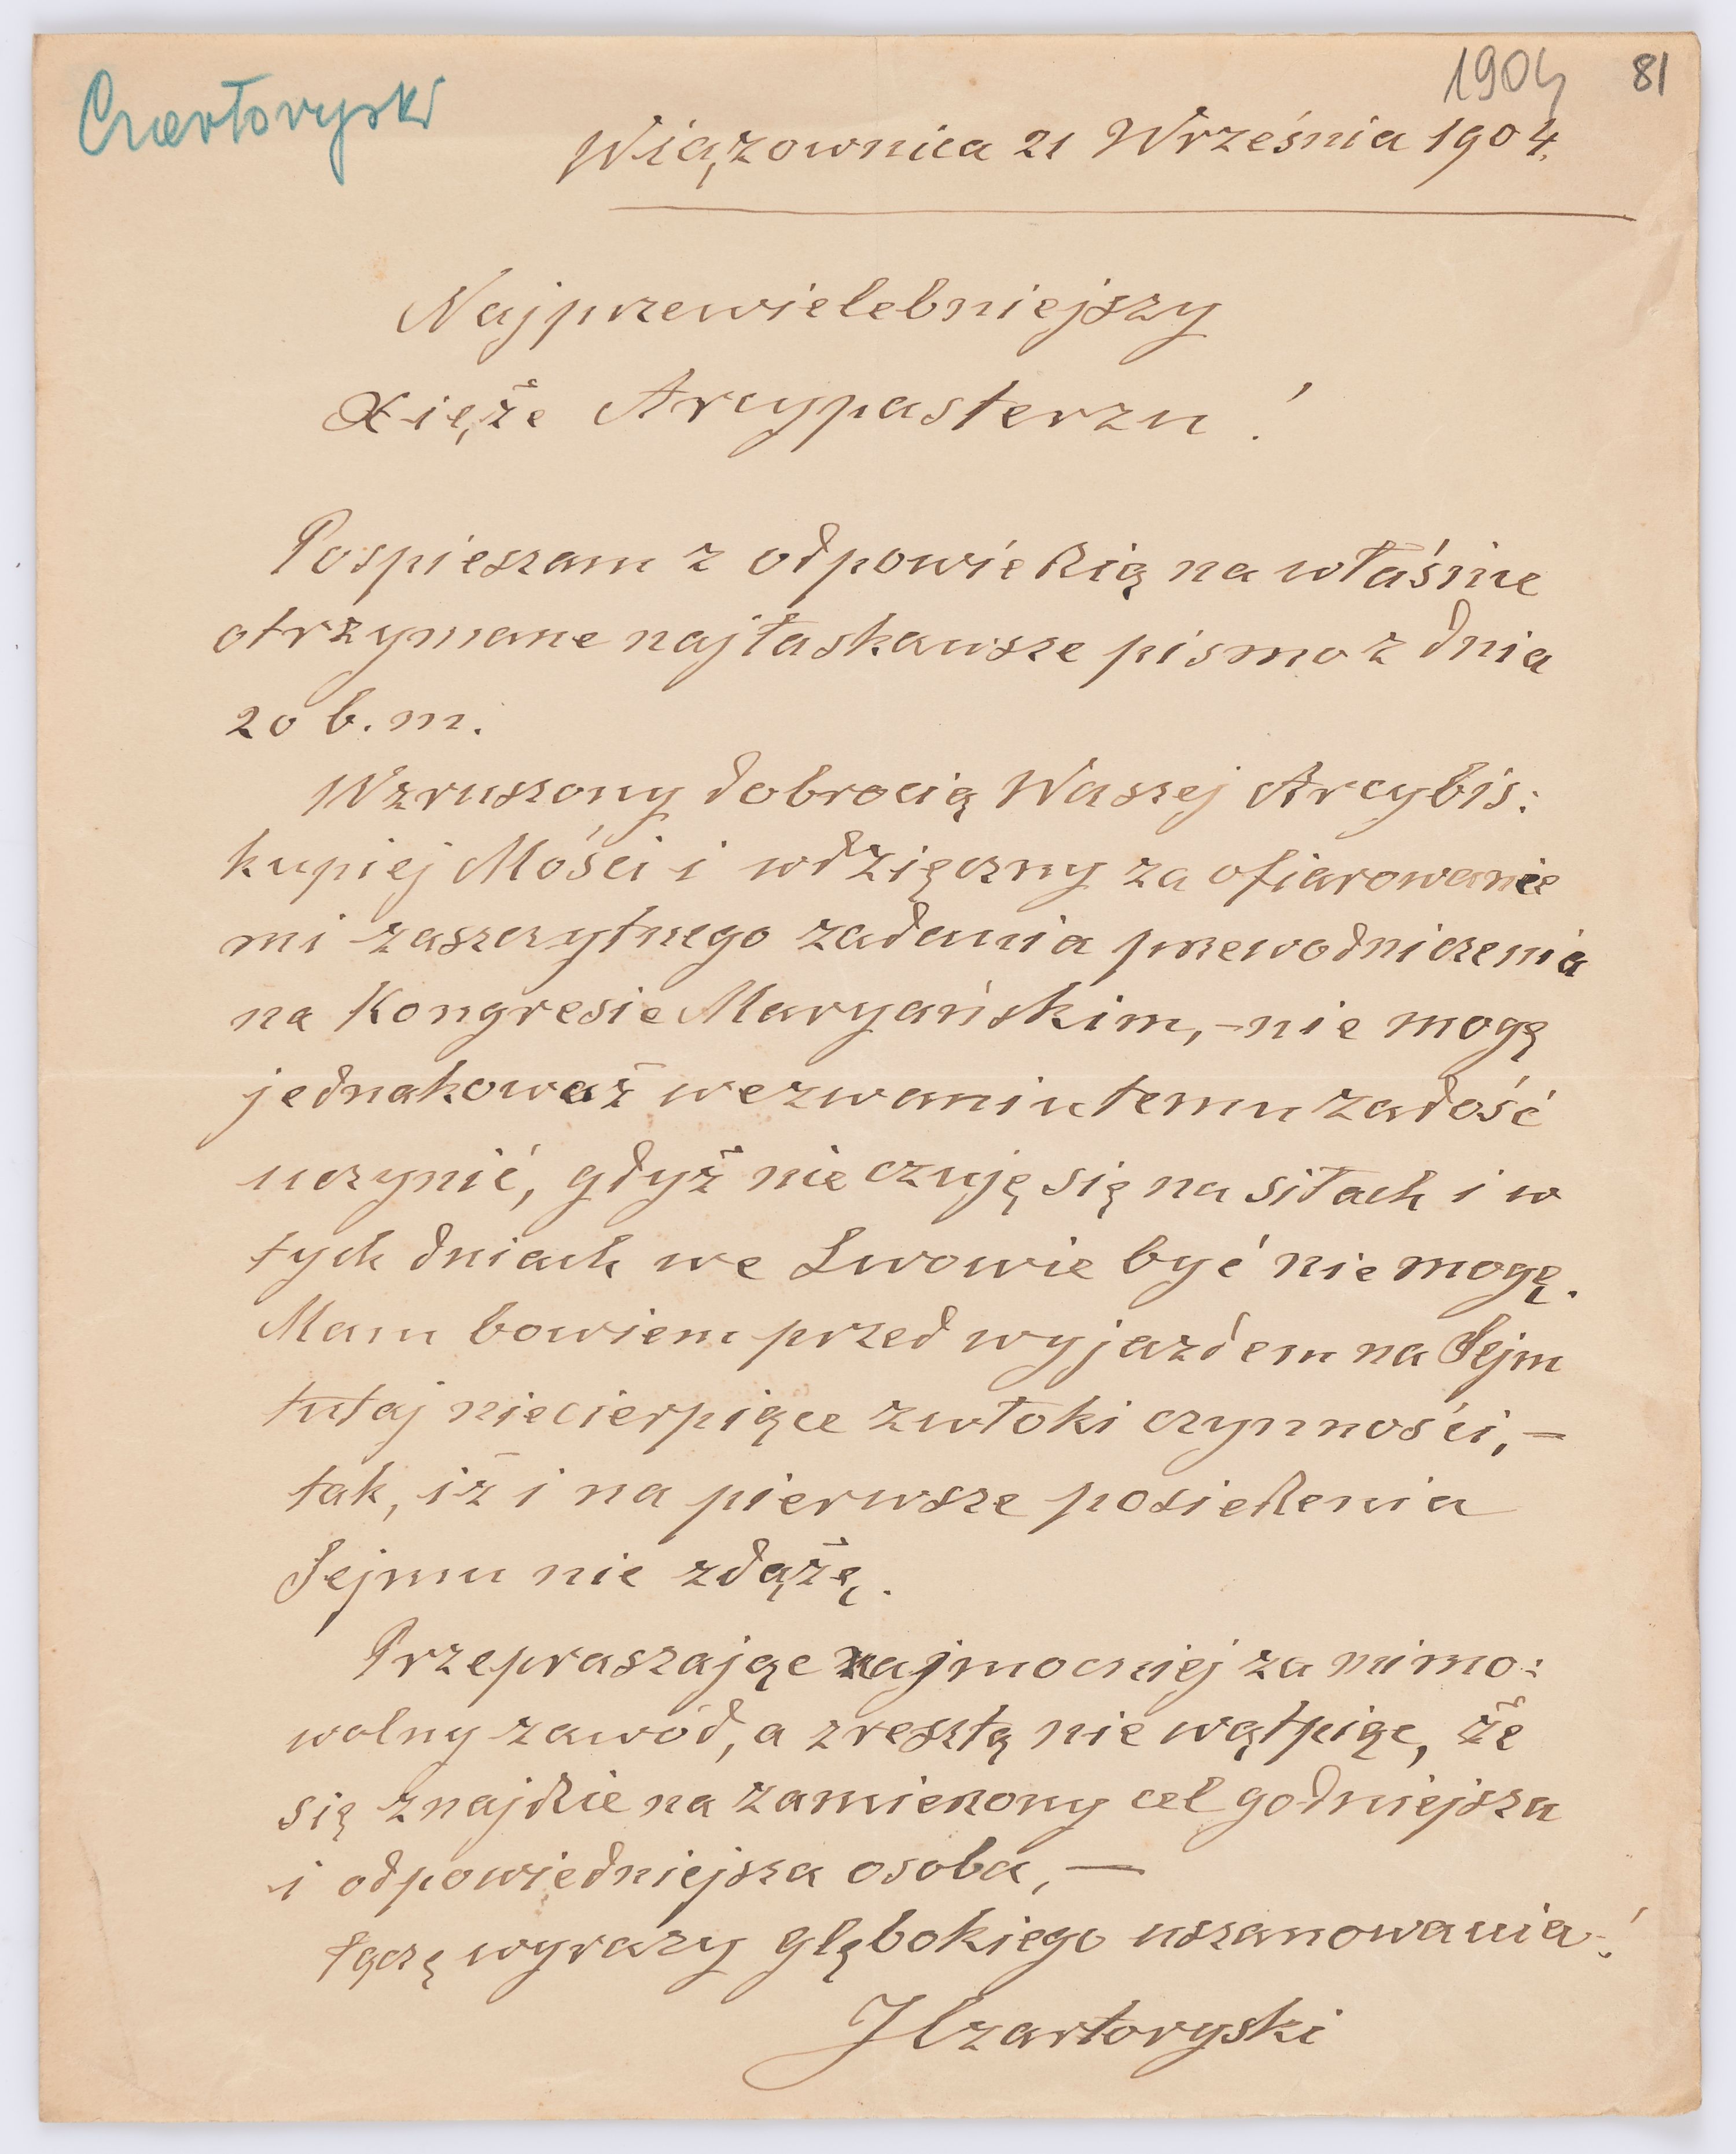 Czartoryski
1904
81
Wiązownica 21 Września 1904.
Najprzewielebniejszy
Xięże Arcypasterzu!
Pospieszam z odpowiedzią na właśnie
otrzymane najłaskawsze pismo z dnia
20 b. m.
Wzruszony dobrocią Waszej Arcybis:
kupiej Mości i wdzięczny za ofiarowanie
mi zaszczytnego zadania przewodniczenia
na Kongresie Maryańskim, – nie mogę
jednakowaź wezwaniu temu zadość
uczynić, gdyż nie czuję się na siłach i w
tych dniach we Lwowie być nie mogę.
Mam bowiem przed wyjazdem na Sejm
tutaj niecierpiące zwłoki czynności, –
tak, iż i na pierwsze posiedzenia
Sejmu nie zdążę.
Przepraszając najmocniej za mimo:
wolny zawód, a zresztą nie wątpiąc, że
się znajdzie na zamierzony cel godniejsza
i odpowiedniejsza osoba, —
łączę wyrazy głębokiego uszanowania!
JCzartoryski